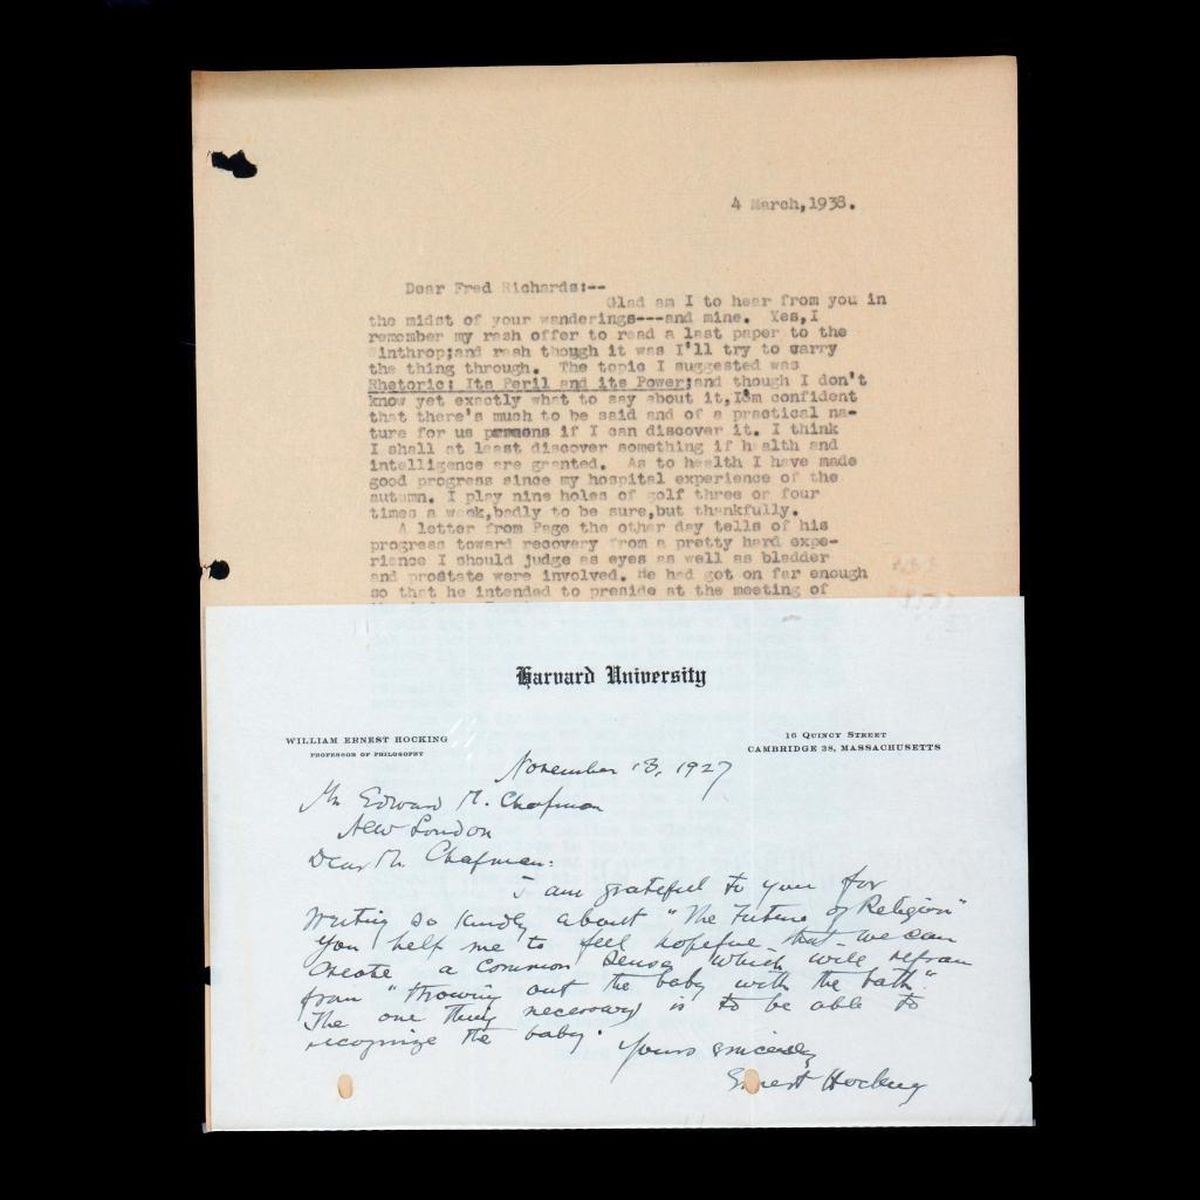 4 March,1938.
Dear Fred Richards:--
Glad am I to hear from you in
the midst of your wanderings---and mine. Yes,I
remember my rash offer to read a last paper to the
Winthrop;and rash though it was I'll try to carry
the thing through. The topic I suggested was
Rhetoric: Its Peril and its Power;and though I don't
know yet exactly what to say about it,I'm confident
that there's much to be said and of a practical na-
ture for us parsons if I can discover it. I think
I shall at least discover something if health and
intelligence are granted. As to health I have made
good progress since my hospital experience of the
autumn. I play nine holes of golf three or four
times a week,badly to be sure,but thankfully.
A letter from Page the other day tells of his
progress toward recovery from a pretty hard expe-
rience I should judge as eyes as well as bladder
and prostate were involved. He had got on far enough
so that he intended to preside at the meeting of
Harvard University
WILLIAM ERNEST HOCKING
PROFESSOR OF PHILOSOPHY
16 QUINCY STREET
CAMBRIDGE 38, MASSACHUSETTS
November 13, 1927
Mr Edward M. Chapman
New London
Dear Mr. Chapman:
I am grateful to you for
writing so kindly about "The Future of Religion"
You help me to feel hopeful that we can
create a common sense which will refrain
from "throwing out the baby with the bath".
The one thing necessary is to be able to
recognize the baby.
Yours sincerely
Ernest Hocking